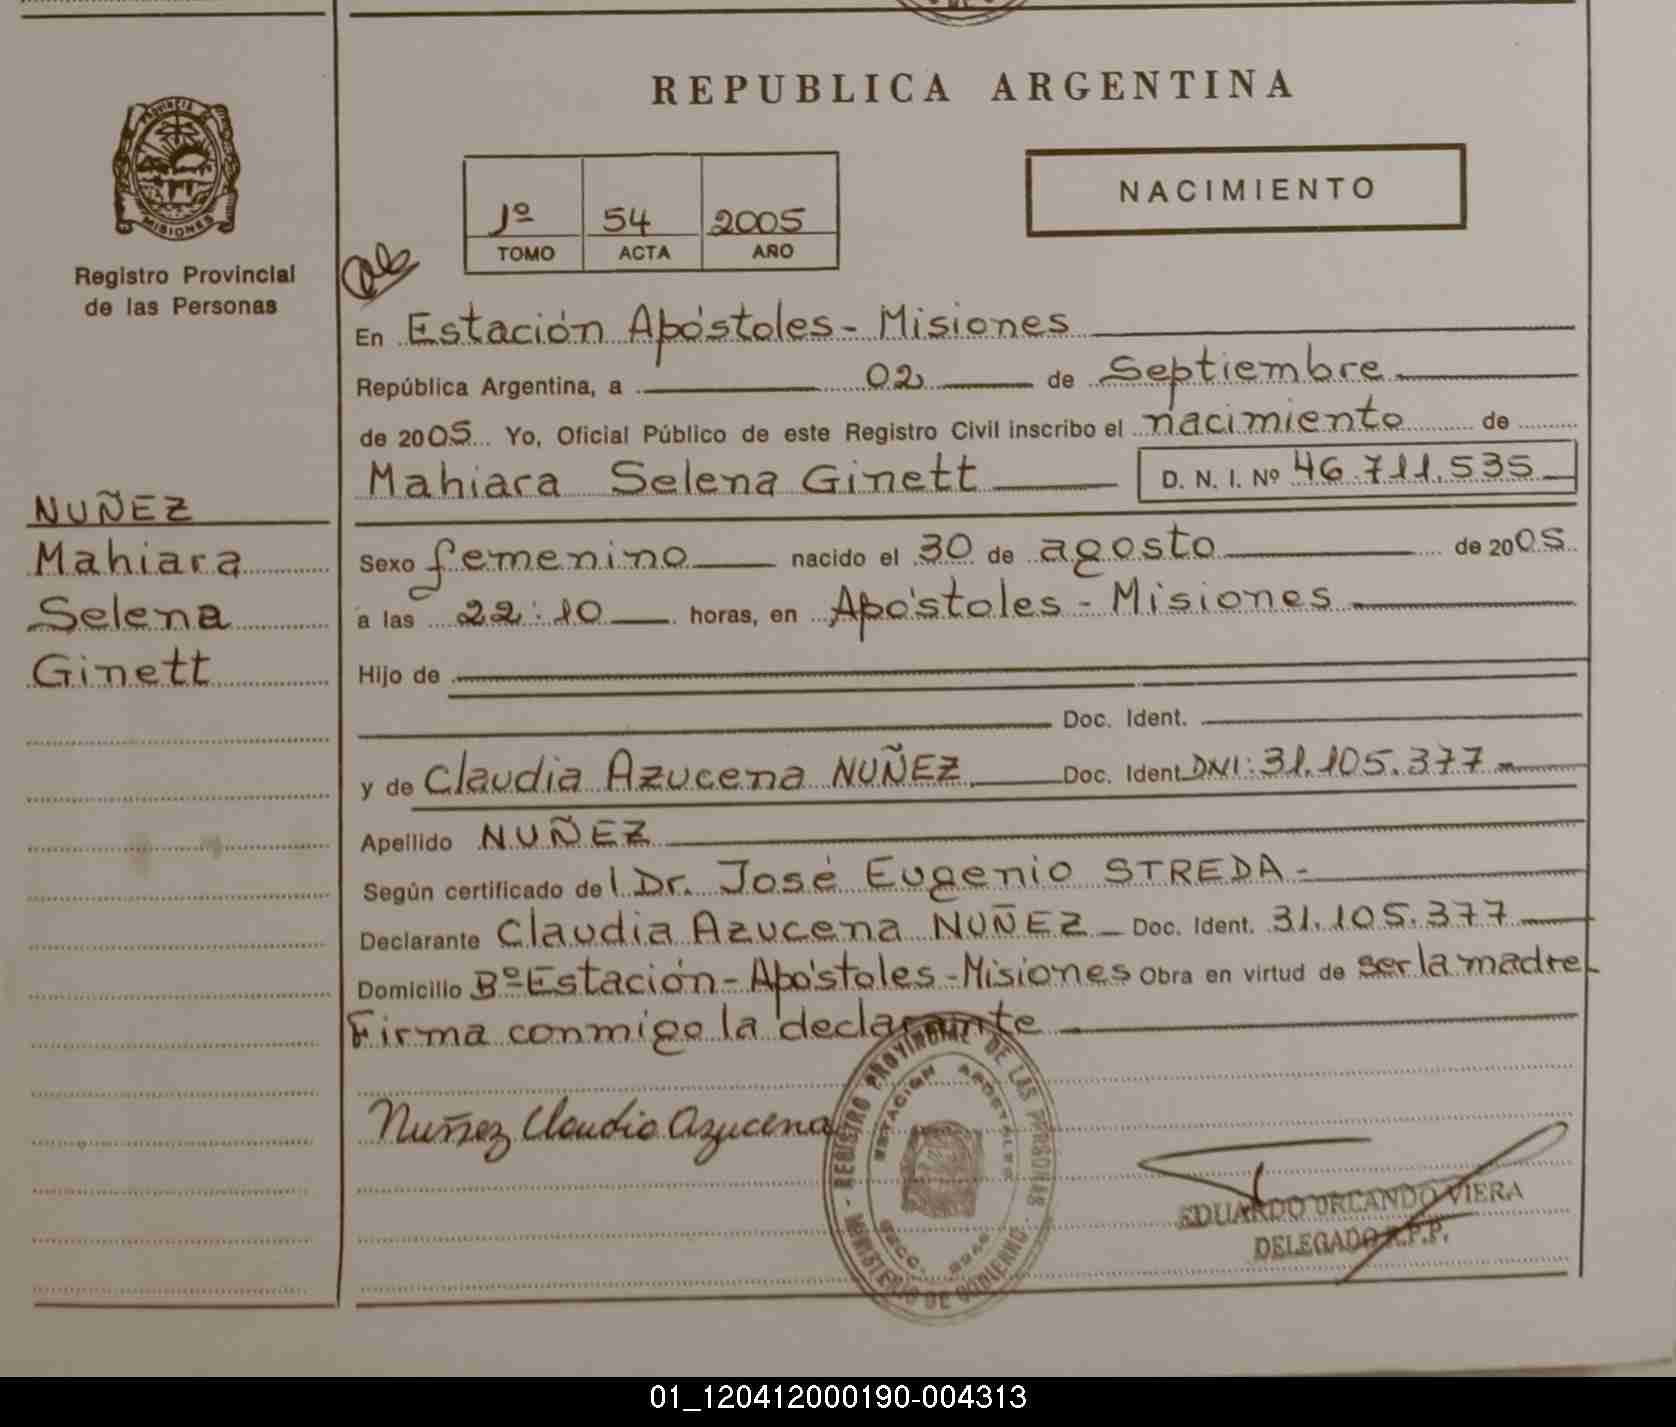 REPUBLICA ARGENTINA
PROVINCIA DE
MISIONES
Registro Provincial
de las Personas
1º 54 2005
TOMO ACTA AÑO
NACIMIENTO
En Estación Apóstoles - Misiones
República Argentina, a 02 de Septiembre
de 2005 Yo, Oficial Público de este Registro Civil inscribo el nacimiento de
Mahiara Selena Ginett D. N. I. Nº 46.711.535
NUÑEZ
Mahiara
Selena
Ginett
Sexo femenino nacido el 30 de agosto de 2005
a las 22:10 horas, en Apóstoles - Misiones
Hijo de
Doc. Ident.
y de Claudia Azucena NUÑEZ Doc. Ident DNI: 31.105.377
Apellido NUÑEZ
Según certificado del Dr. José Eugenio STREDA -
Declarante Claudia Azucena NUÑEZ Doc. Ident. 31.105.377
Domicilio Bº Estación - Apóstoles - Misiones Obra en virtud de ser la madre
Firma conmigo la declarante
Nuñez Claudia Azucena
REGISTRO PROVINCIAL DE LAS PERSONAS
MINISTERIO DE GOBIERNO
ESTACION APOSTOLES
SECC.
EDUARDO ORLANDO VIERA
DELEGADO R.P.P.
01_120412000190-004313